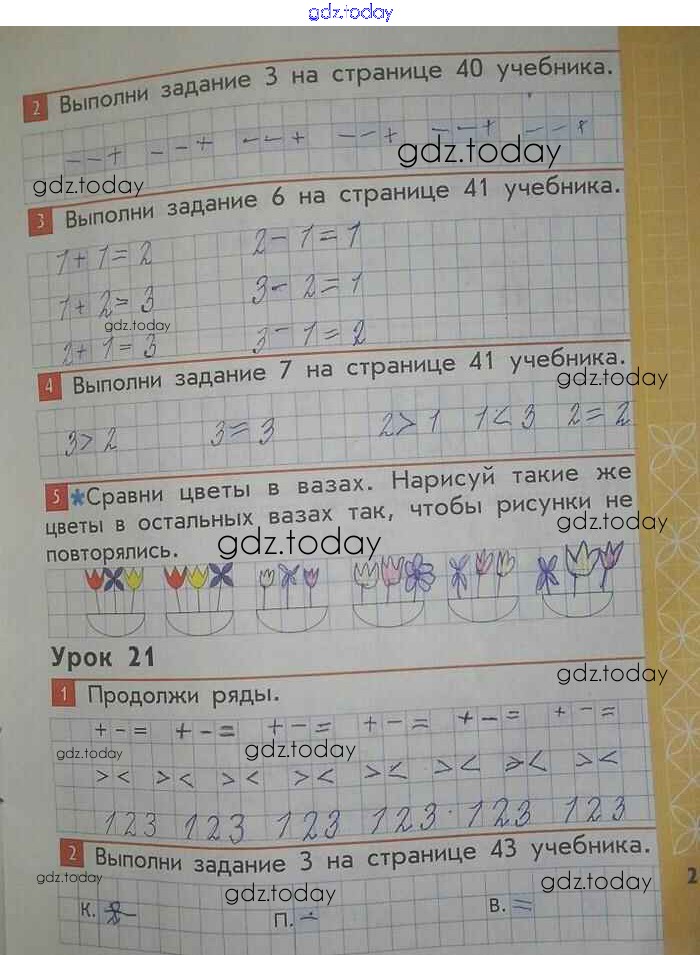 gdz.today
2 Выполни задание 3 на странице 40 учебника.
− − + − − + − − + − − + − − + − − +
gdz.today
gdz.today
3 Выполни задание 6 на странице 41 учебника.
1 + 1 = 2 2 − 1 = 1
1 + 2 = 3 3 − 2 = 1
gdz.today
2 + 1 = 3 3 − 1 = 2
4 Выполни задание 7 на странице 41 учебника.
gdz.today
3 > 2 3 = 3 2 > 1 1 < 3 2 = 2
5 * Сравни цветы в вазах. Нарисуй такие же
цветы в остальных вазах так, чтобы рисунки не
gdz.today
повторялись.
gdz.today
Урок 21
gdz.today
1 Продолжи ряды.
+ − = + − = + − = + − = + − = + − =
gdz.today gdz.today
> < > < > < > < > < > < > < > <
1 2 3 1 2 3 1 2 3 1 2 3 1 2 3 1 2 3
2 Выполни задание 3 на странице 43 учебника.
gdz.today gdz.today gdz.today
2
К. П. В. =